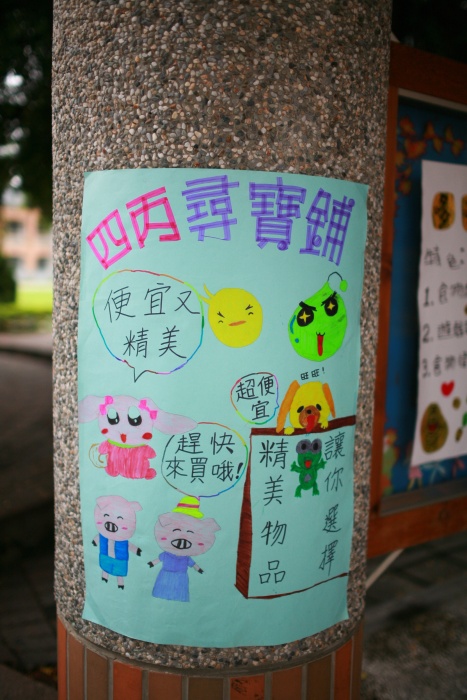 四丙尋寶鋪
便宜又
精美
旺旺!
超便
宜
趕快
來買哦!
讓你選擇
精美物品
1.食物
2.遊戲
3.食物